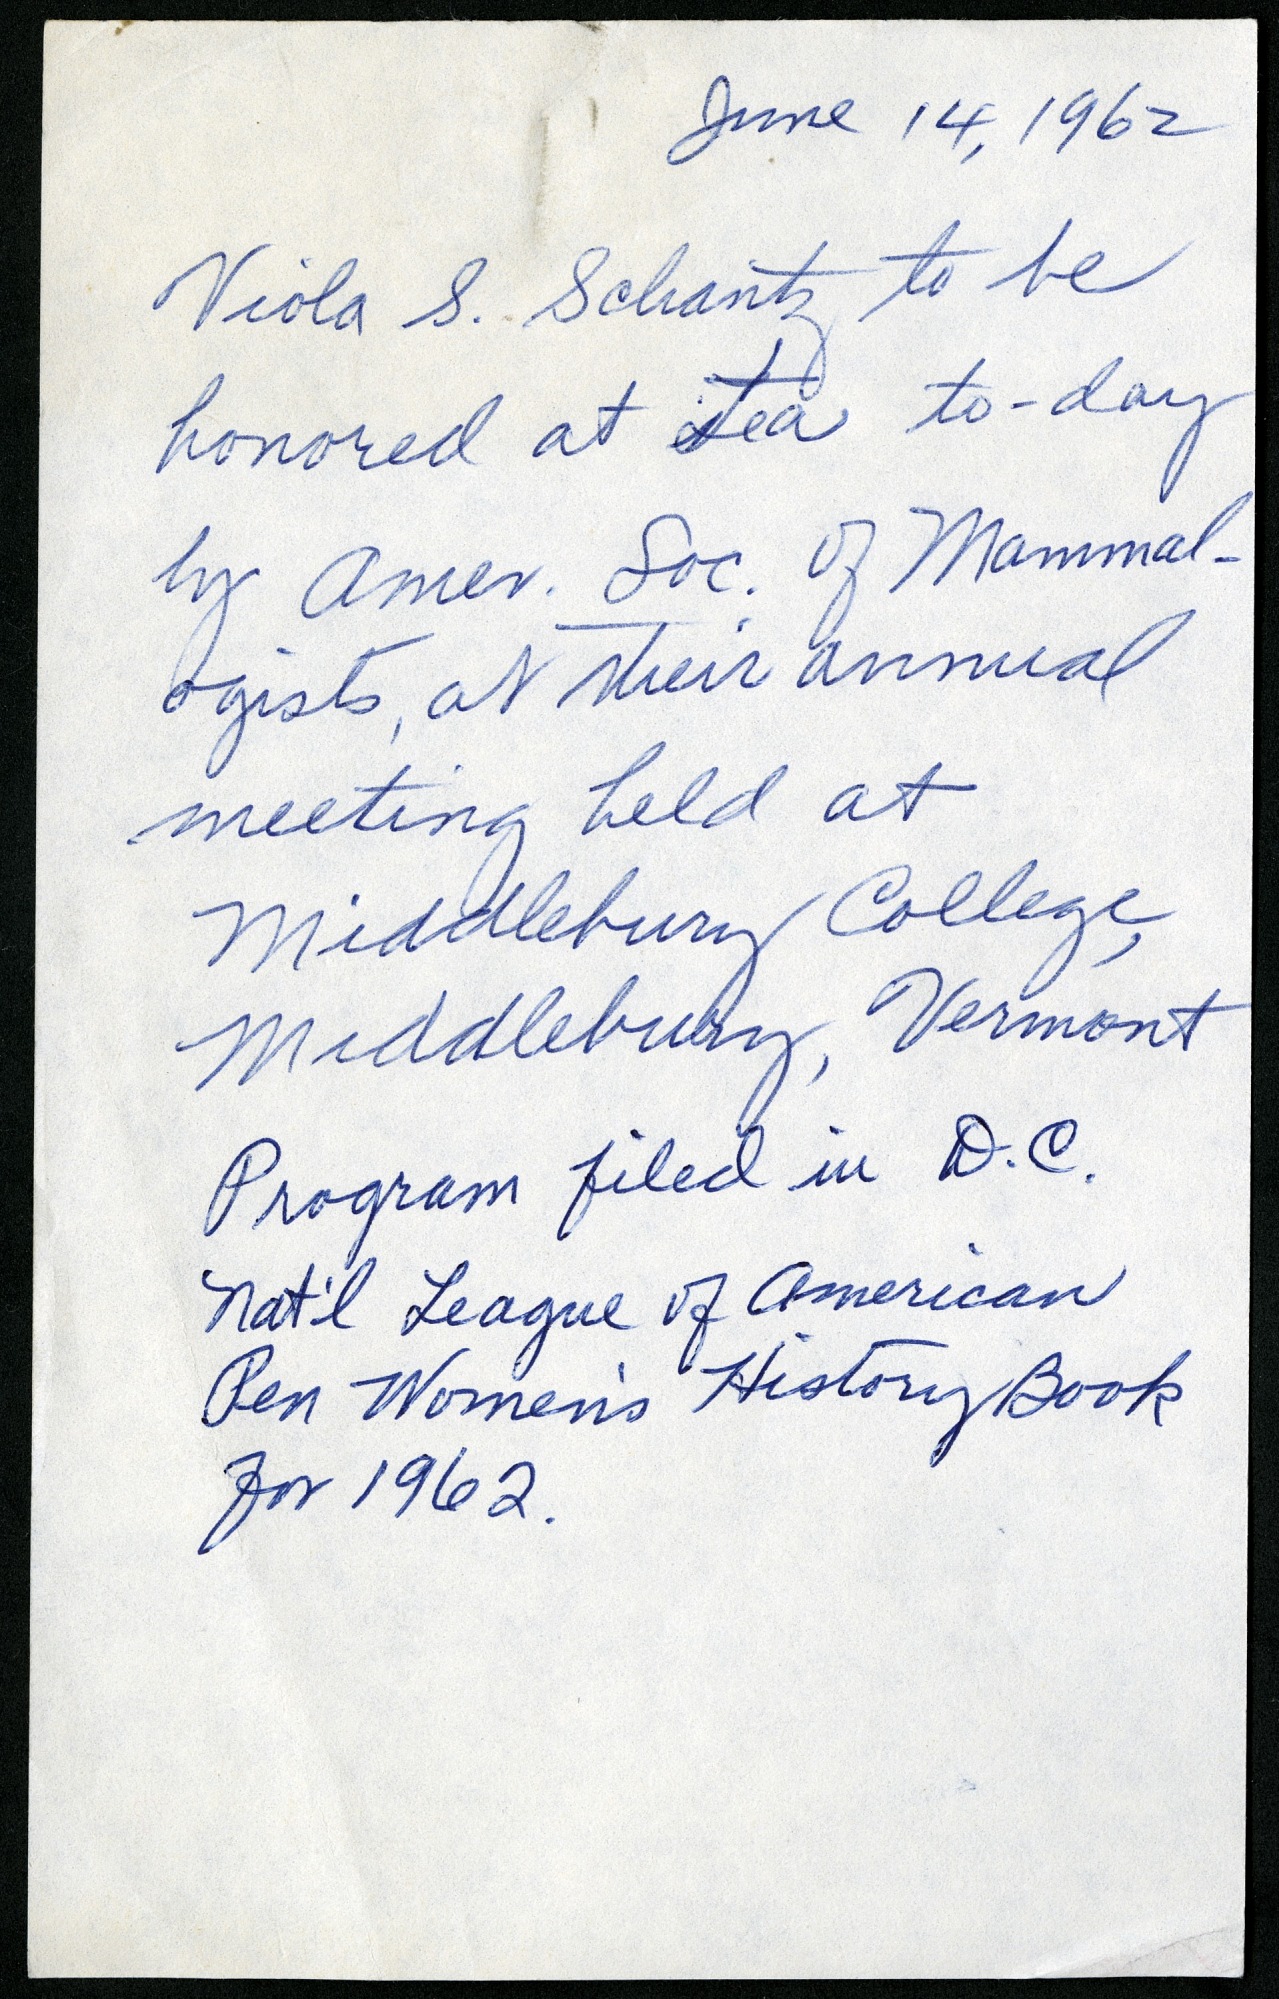 June 14, 1962
Viola S. Schantz to be
honored at tea to-day
by Amer. Soc. of Mammal-
ogists, at their annual
meeting held at
Middlebury College,
Middlebury, Vermont
Program filed in D.C.
Nat'l League of American
Pen Women's History Book
for 1962.